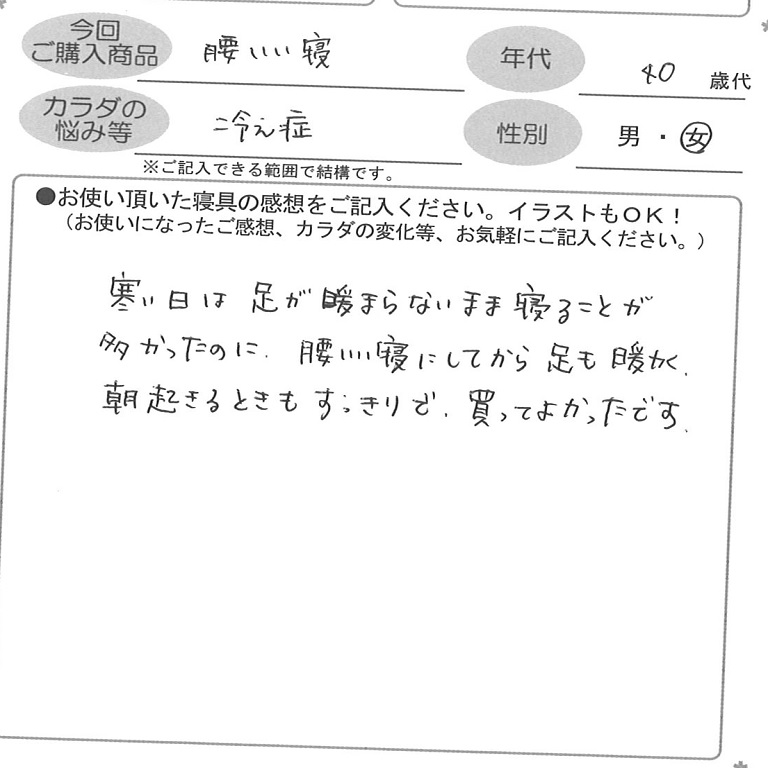 今回
ご購入商品
腰いい寝
年代
40 歳代
カラダの
悩み等
冷え症
性別
男・女
※ご記入できる範囲で結構です。
●お使い頂いた寝具の感想をご記入ください。イラストもOK！
（お使いになったご感想、カラダの変化等、お気軽にご記入ください。）
寒い日は足が暖まらないまま寝ることが
多かったのに、腰いい寝にしてから足も暖かく、
朝起きるときもすっきりで、買ってよかったです。